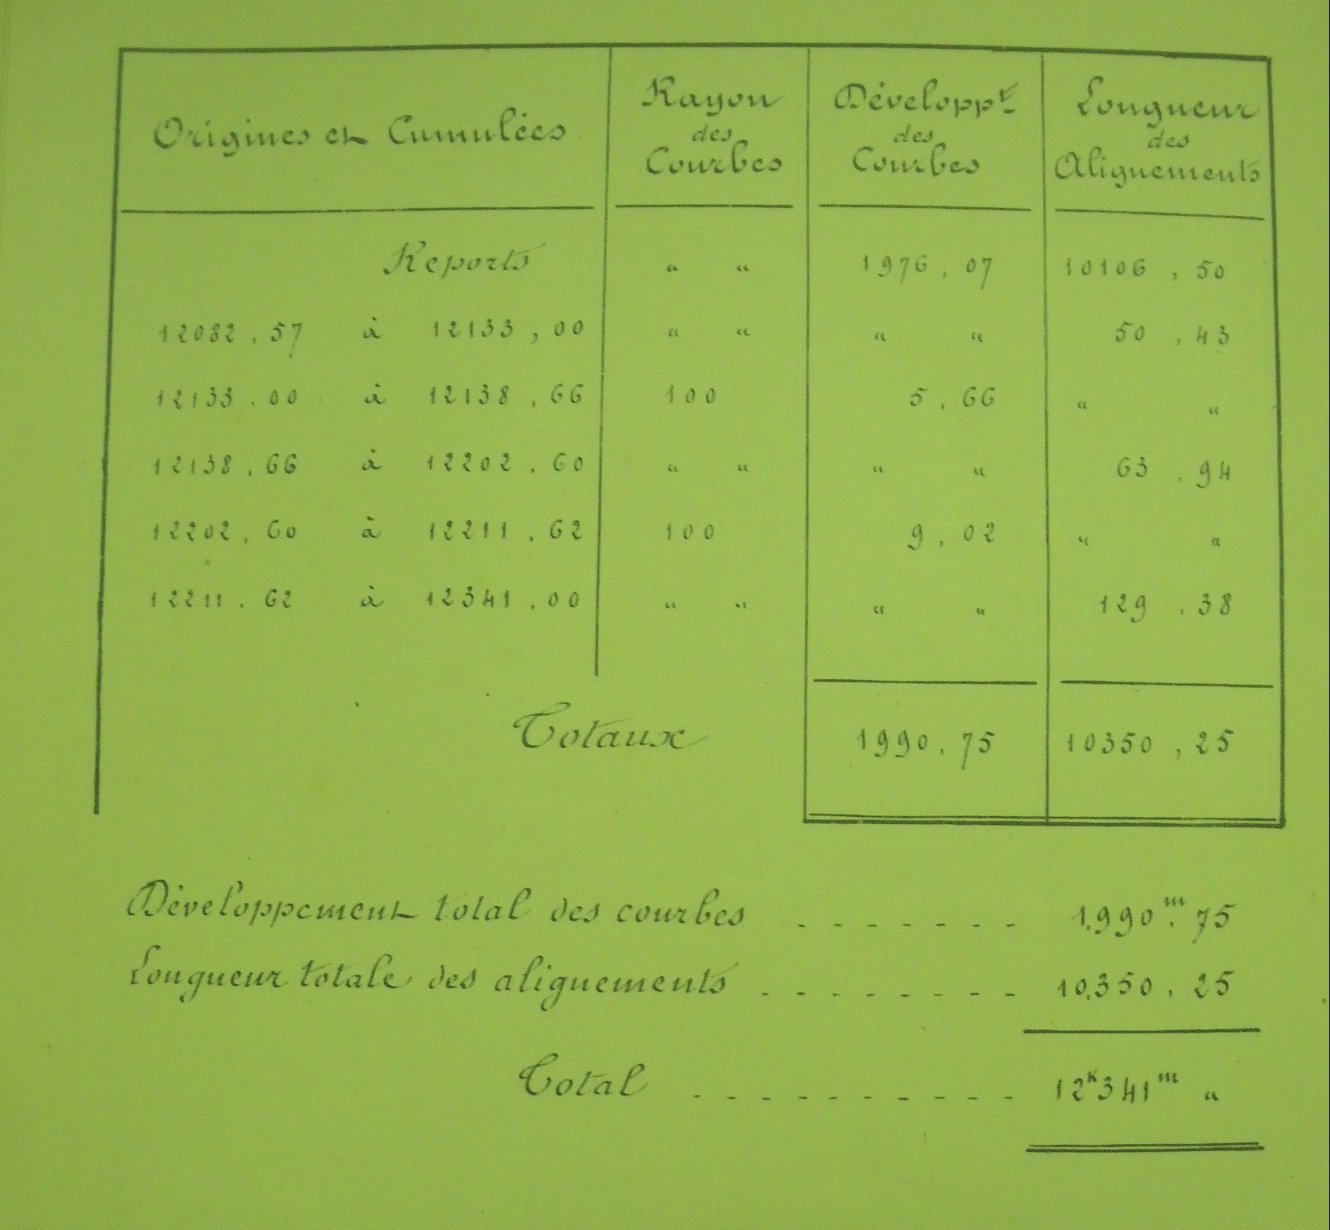 Origines et Cumulées Rayon des Courbes Développt des Courbes Longueur des Alignements
Reports " " 1976, 07 10106, 50
12082, 57 à 12133, 00 " " " " 50, 43
12133, 00 à 12138, 66 100 5, 66 " "
12138, 66 à 12202, 60 " " " " 63, 94
12202, 60 à 12211, 62 100 9, 02 " "
12211, 62 à 12341, 00 " " " " 129, 38
Totaux 1990, 75 10350, 25
Développement total des courbes - - - - - - - 1.990m, 75
Longueur totale des alignements - - - - - - - - 10.350, 25
Total - - - - - - - - - - 12K341m "